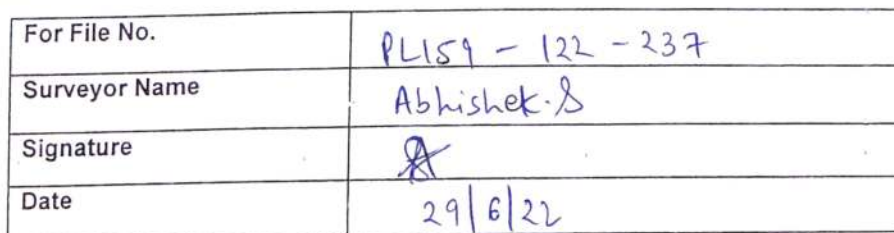 For File No. PL159 - 122 - 237
Surveyor Name Abhishek.S
Signature
Date 29/6/22